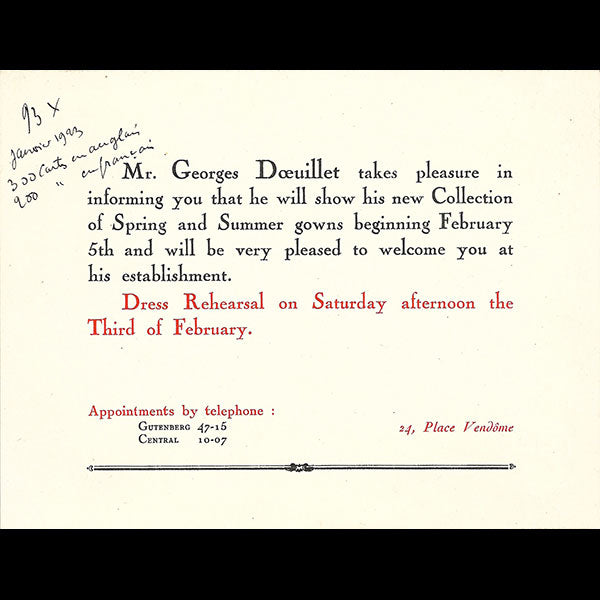 93 x
Janvier 1923
300 Carts en anglais
200 " en français
Mr. Georges Dœuillet takes pleasure in
informing you that he will show his new Collection
of Spring and Summer gowns beginning February
5th and will be very pleased to welcome you at
his establishment.
Dress Rehearsal on Saturday afternoon the
Third of February.
Appointments by telephone :
GUTENBERG 47-15
CENTRAL 10-07
24, Place Vendôme